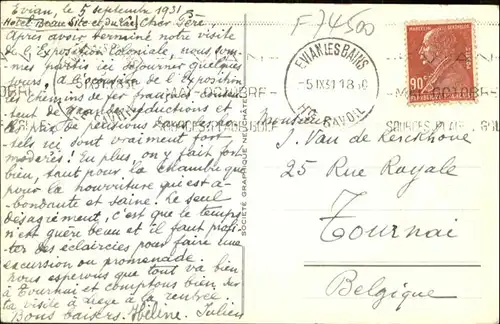 Evian, le 5 septembre 1931
Hotel Beau Site et du Lac) Cher Géré,
Après avoir terminé notre visite
de l'Exposition Coloniale, nous som-
mes partis ici séjourner quelques
jours. A l'occasion de l'Exposition
les chemins de fer français consen-
tent de grandes réductions et
le prix de pensions dans les ho-
tels ici sont vraiment fort
modérés. En plus, on y fait fort
bien, saut pour la chambre que
pour la nourriture qui est a-
bondante et saine. Le seul
désagrément, c'est que le temps
n'est guère beau et il faut profi-
ter des éclaircies pour faire une
excursion ou promenade.
Nous espérons que tout va bien
à Tournai et comptons bien sur
ta visite à Liège à la rentrée.
Bons baisers. Hélène. Julien
SOCIÉTÉ GRAPHIQUE NEUCHATEL
F 74500
EVIAN LES BAINS
-5 IX 31 18 30
HTE SAVOIE
MAI-OCTOBRE
SOURCES PLAGE
90c
Monsieur
J. Van de Kerckhove
25 Rue Royale
Tournai
Belgique